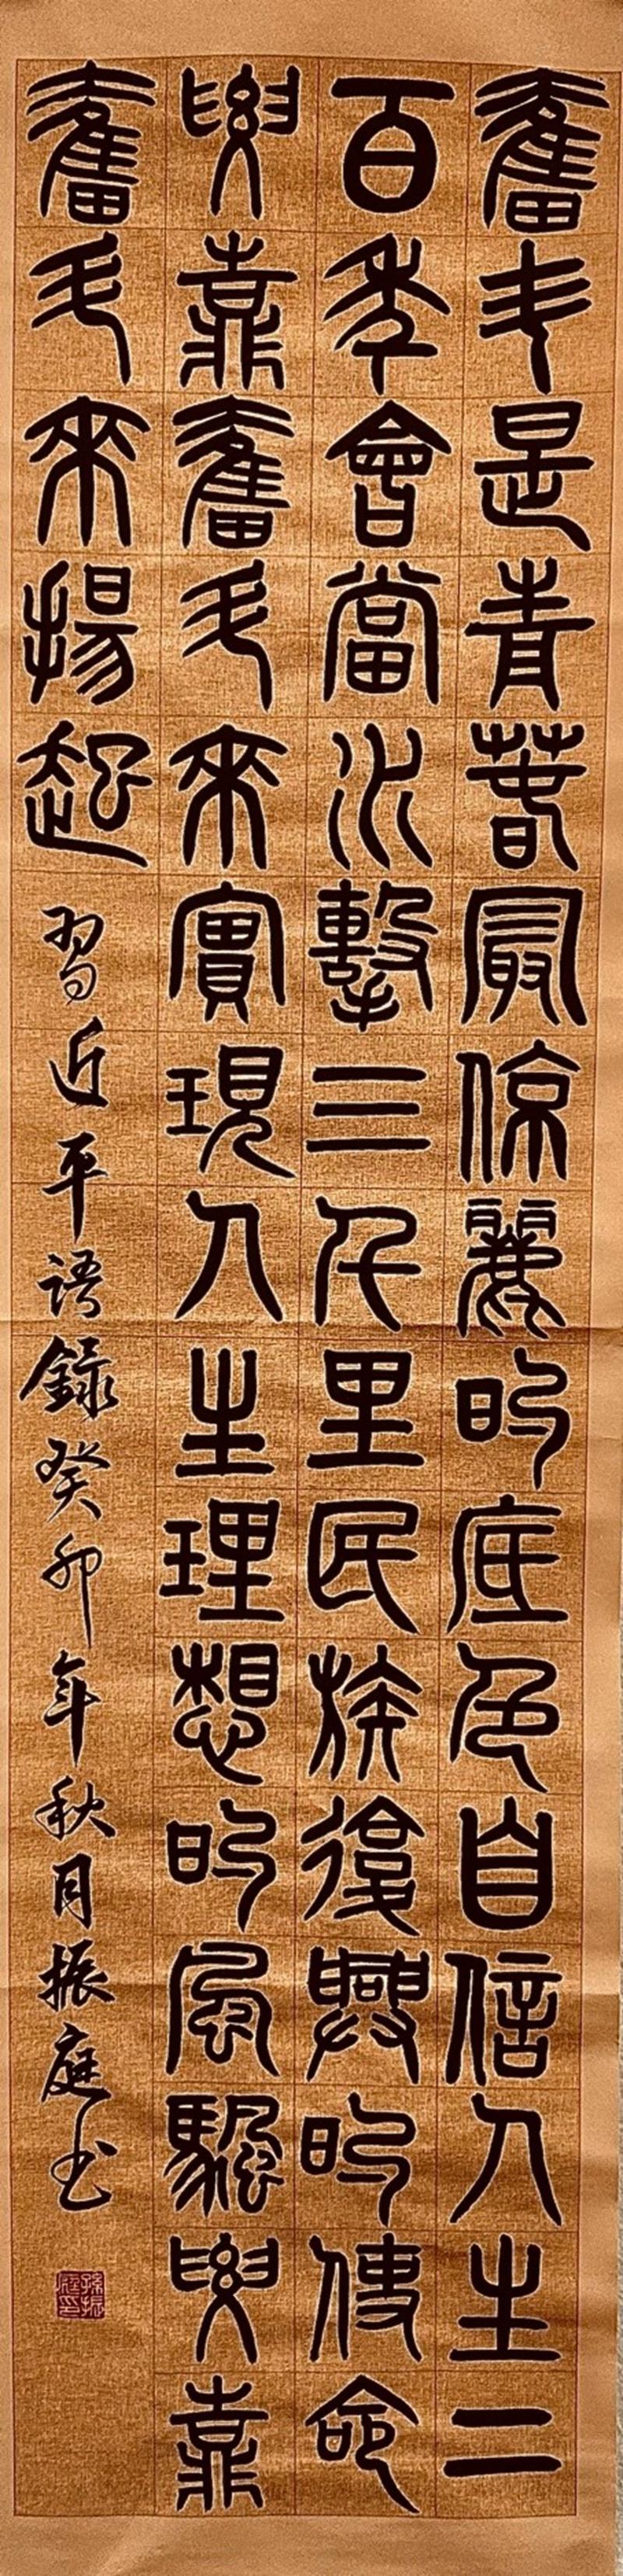 奮斗是青春最亮麗的底色自信人生二
百年會當水擊三千里民族復興的使命
要靠奮斗來實現人生理想的風颿要靠
奮斗來揚起 習近平語錄癸卯年秋月振庭书
孫振庭印